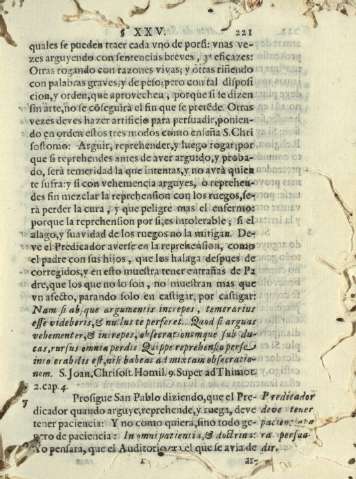 § XXV. 221
quales se pueden traer cada vno de por si: vnas ve-
zes arguyendo con sentencias breves, y eficazes:
Otras rogando con razones vivas; y otras riñendo
con palabras graves, y de peso; pero con tal disposi
cion, y orden, que aproveche; porque si se dizen
sin arte, no se cõseguirà el fin que se pretẽde. Otras
vezes deves hazer artificio para persuadir, ponien-
do en orden estos tres modos como enseña S. Chri
sostomo: Arguir, reprehender, y luego rogar; por
que si reprehendes antes de aver arguido, y proba-
do, serà temeridad la que intentas, y no avrà quien
te sufra: y si con vehemencia arguyes, ò reprehen-
des sin mezclar la reprehension con los ruegos, se-
rà perder la cura, y que peligre mas el enfermo:
porque la reprehension por si, es intolerable; si el
alago, y suavidad de los ruegos no la mitigan. De-
ve el Predicador averse en la reprehension, como
el padre con sus hijos, que los halaga despues de
corregidos, y en esto muestra tener entrañas de Pa
dre, que los que no lo son, no muestran mas que
vn afecto, parando solo en castigar, por castigar:
Nam si ab, que argumentis increpes, temerarius
esse videberis, & nullus te perferet. Quod si arguas
vehementer, & increpes, obsecrationemque sub du-
cas, rursus omnia perdis Quippe reprehensio per se
im o erabilis est, nisi habeas admixtam obsecratio-
nem. S. Joan. Chrisost. Homil. 9. Super ad Thimot.
2. cap. 4.
Prosigue San Pablo diziendo, que el Pre-
dicador quando arguye, reprehende, y ruega, deve
tener paciencia: Y no como quiera, sino todo ge-
nero de paciencia: In omni patientia, & doctrina:
Yo pensara, que el Auditorio, al que se avia de
Predicador
deve tener
paciencia
para persua
dir.